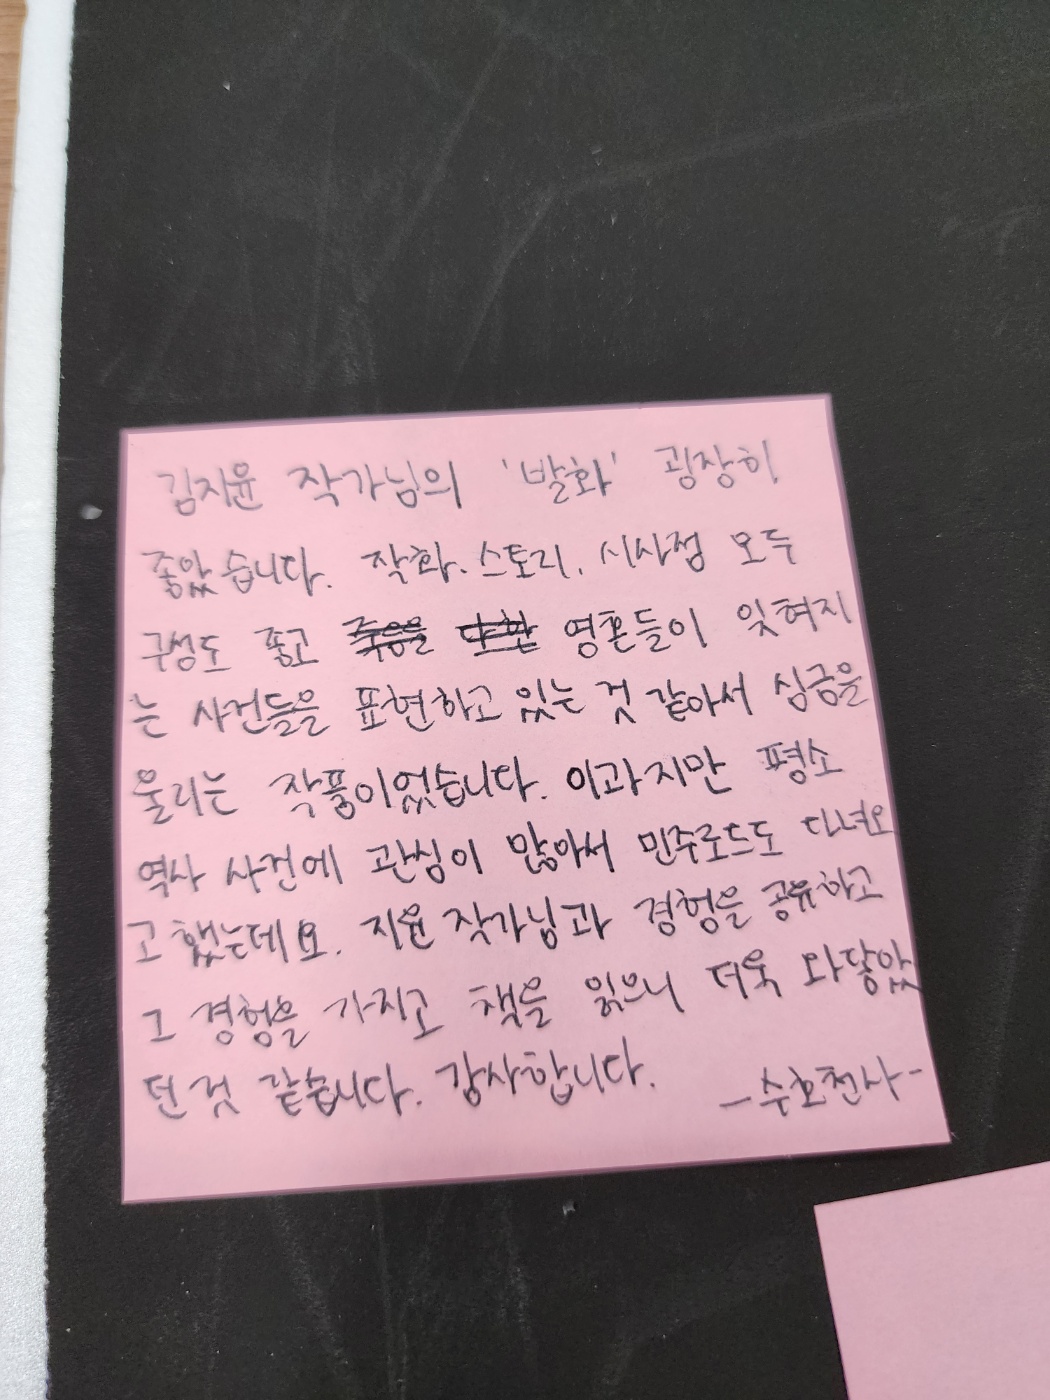 김지윤 작가님의 '발화' 굉장히
좋았습니다. 작화. 스토리. 시사점 모두
구성도 좋고 영혼들이 잊혀지
는 사건들을 표현하고 있는 것 같아서 심금을
울리는 작품이었습니다. 이과지만 평소
역사 사건에 관심이 많아서 민주로드도 다녀오
고 했는데요. 지윤 작가님과 경험을 공유하고
그 경험을 가지고 책을 읽으니 더욱 와닿았
던 것 같습니다. 감사합니다. -수호천사-